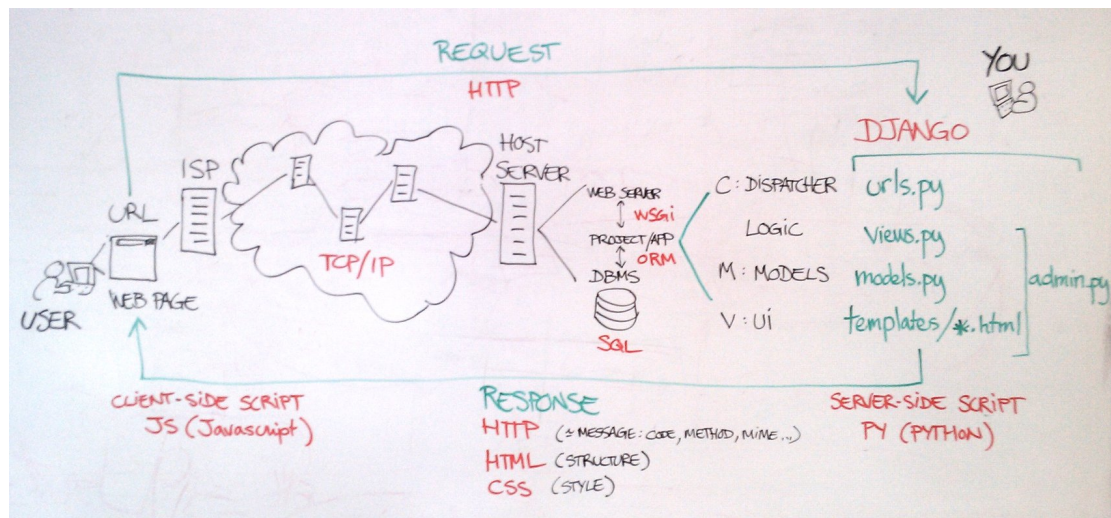 REQUEST
HTTP
YOU
DJANGO
ISP
HOST
SERVER
URL
WEB PAGE
USER
TCP/IP
WEB SERVER
WSGi
PROJECT/APP
ORM
DBMS
SQL
C: DISPATCHER
urls.py
LOGIC
views.py
M: MODELS
models.py
V: Ui
templates/*.html
admin.py
CLIENT-SIDE SCRIPT
JS (Javascript)
RESPONSE
HTTP (≃ MESSAGE: CODE, METHOD, MIME...)
HTML (STRUCTURE)
CSS (STYLE)
SERVER-SIDE SCRIPT
PY (PYTHON)